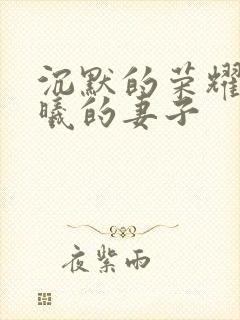 沉默的荣耀
曦的妻子
夜紫雨